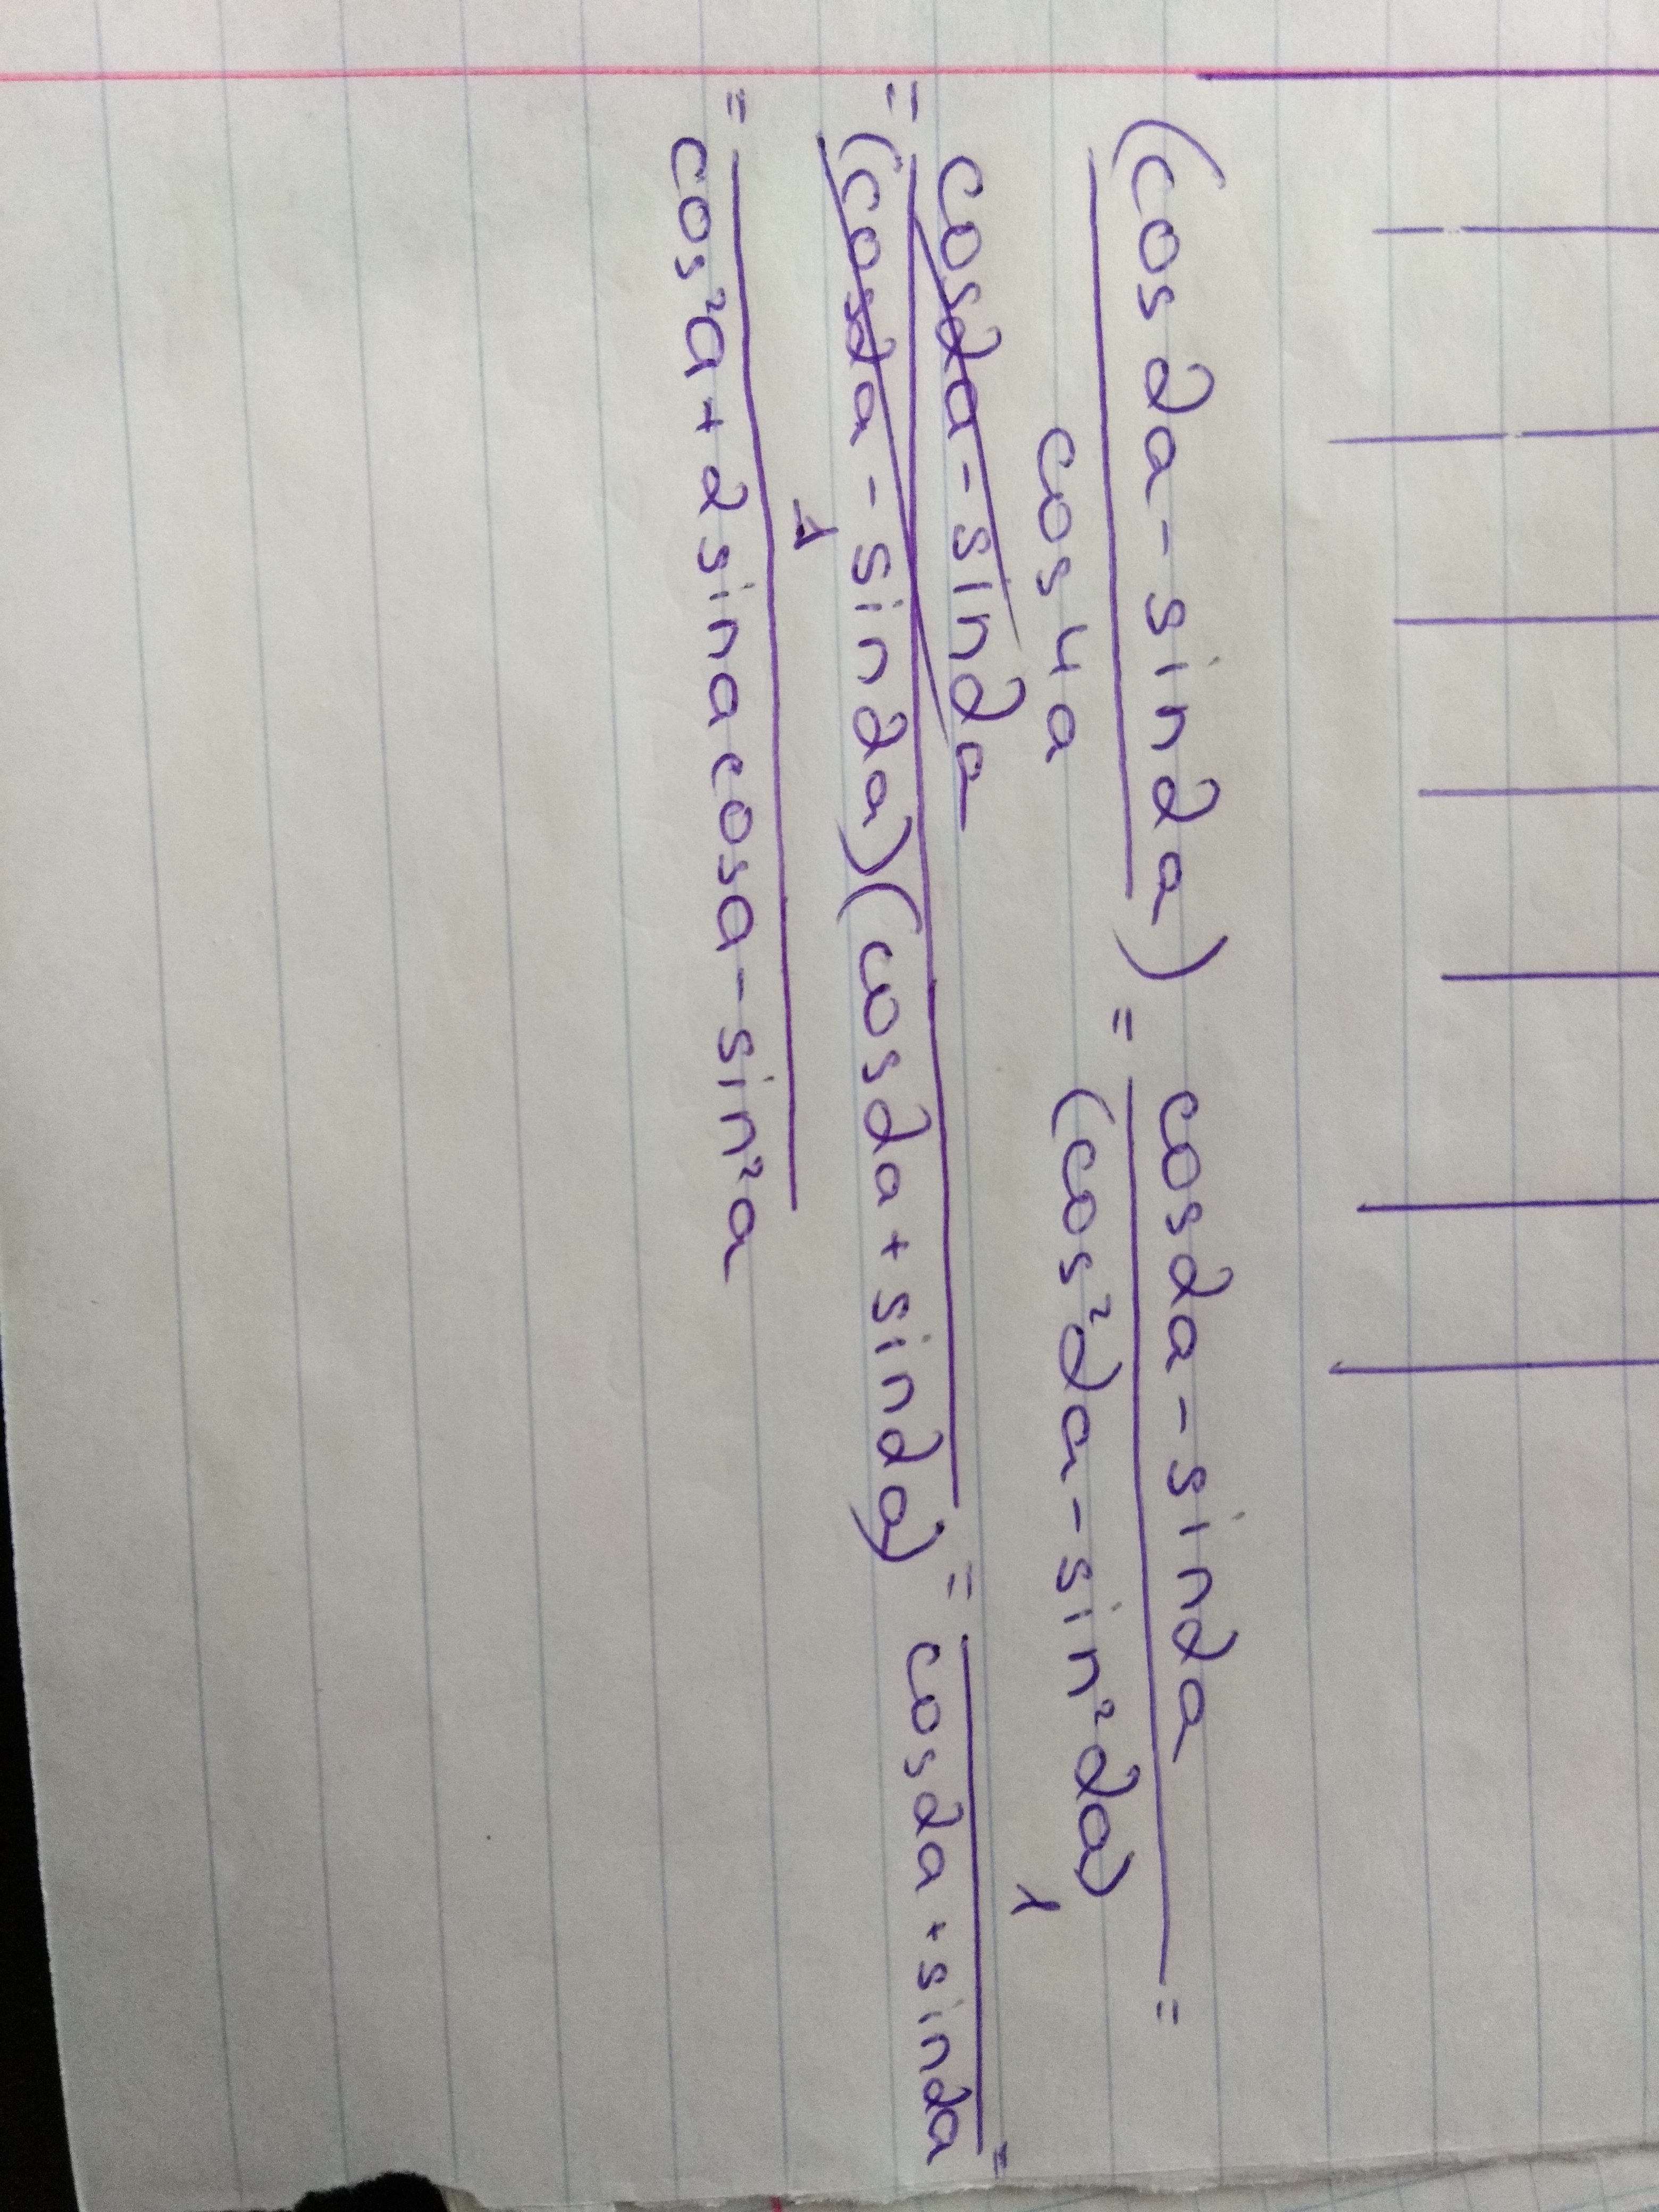 (cos 2a - sin 2a) / cos 4a = cos2a - sin2a / (cos²2a - sin²2a) =
= cos2a - sin2a / (cos2a - sin2a)(cos2a + sin2a) = 1 / cos2a + sin2a =
= 1 / cos²a + 2 sina cosa - sin²a